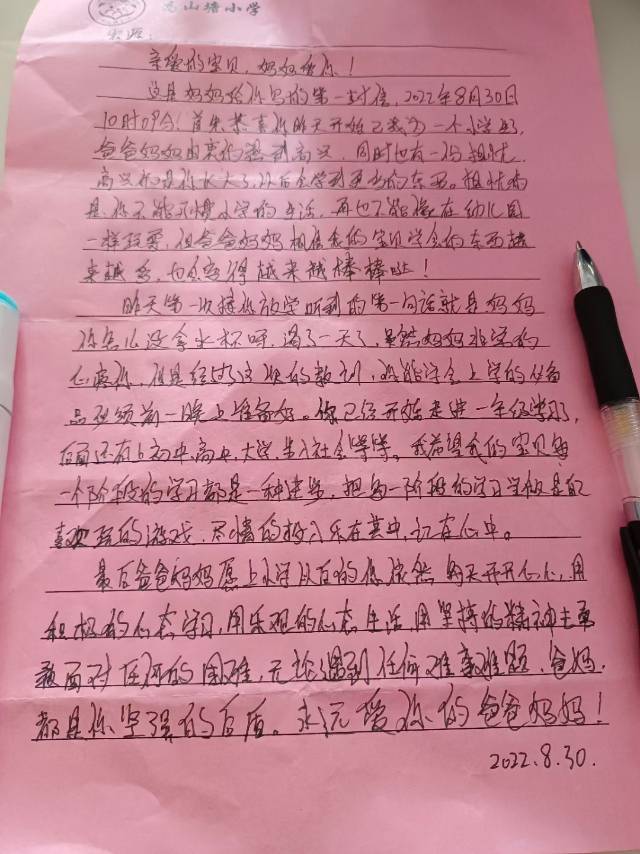 山塘小学
亲爱的宝贝,妈妈爱你!
这是妈妈给你写的第一封信,2022年8月30日
10时09分!首先恭喜你昨天开始已成为一个小学生,
爸爸妈妈由衷的感到高兴,同时也有一份担忧,
高兴的是你长大了,以后会学到更多的东西。担忧的
是你不能习惯小学的生活,再也不能像在幼儿园
一样玩耍,但爸爸妈妈相信我的宝贝学会的东西越
来越多,也会变得越来越棒棒哒!
昨天第一次接你放学听到的第一句话就是妈妈
你怎么没拿水杯呀,渴了一天了,虽然妈妈非常的
心疼你,但是经过这次的教训,你能学会上学的必备
品必须前一晚上准备好。你已经开始走进一年级学习了,
后面还有初中、高中、大学、步入社会等等。我希望我的宝贝每
一个阶段的学习都是一种进步,把每一阶段的学习当做是自己
喜欢玩的游戏,尽情的投入乐在其中,记在心中。
最后爸爸妈妈愿上小学以后的你依然每天开开心心,用
积极的心态学习,用乐观的心态生活,用坚持的精神去勇
敢面对任何的困难,无论遇到任何难事难题,爸妈
都是你坚强的后盾。永远爱你的爸爸妈妈!
2022.8.30.